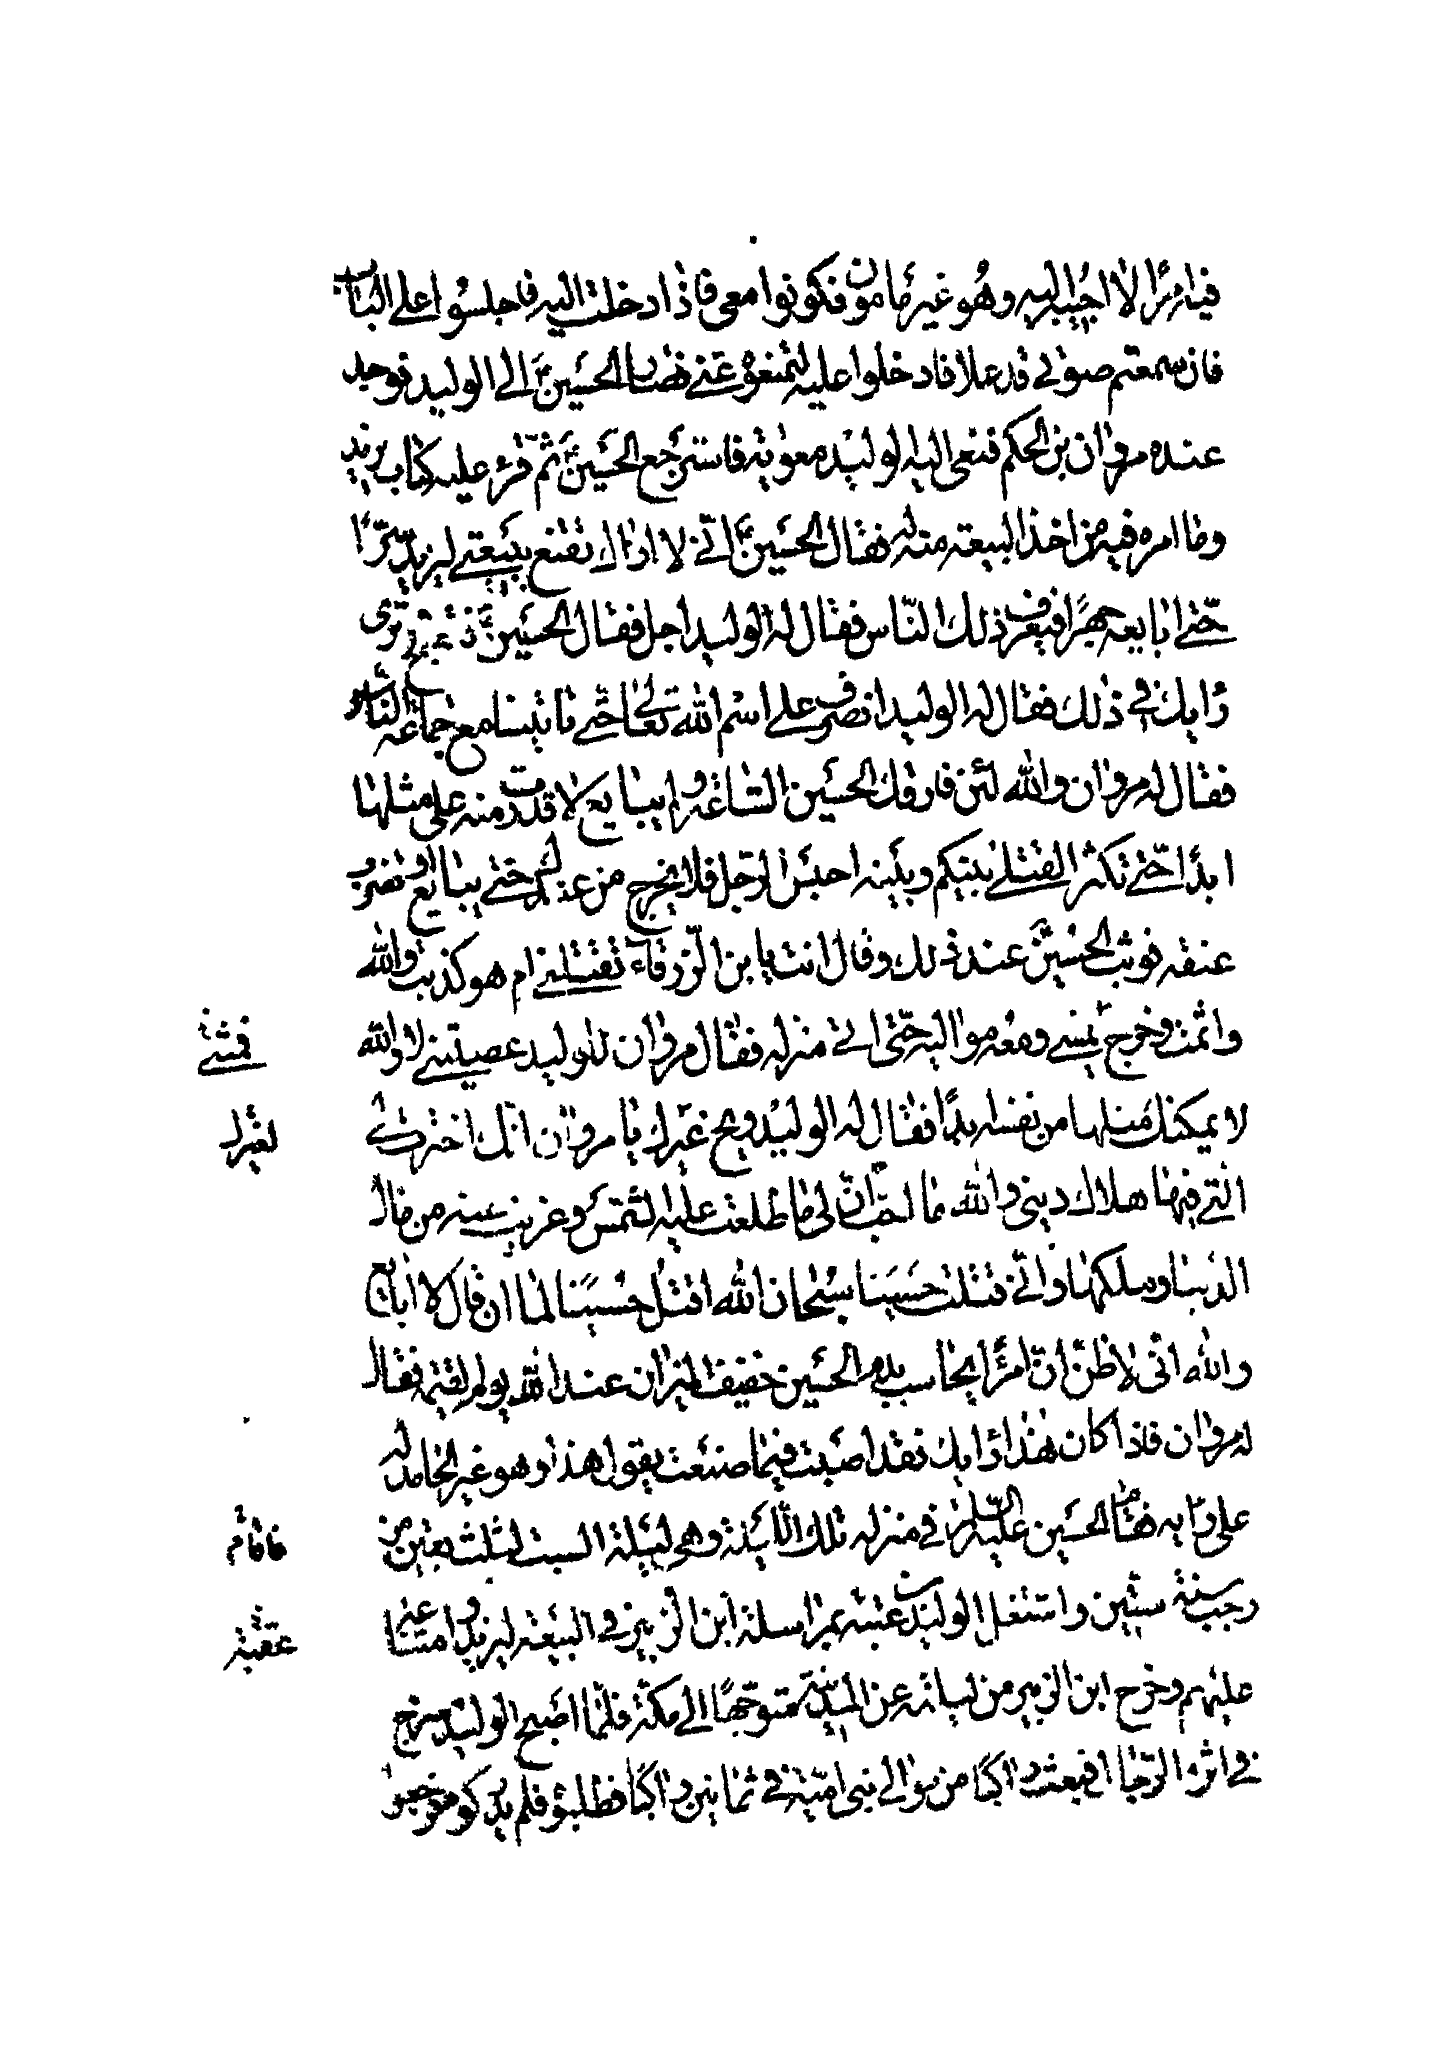 فيه امرًا لا اجيبه اليه وهو غير مامون فكونوا معي فاذا دخلت اليه فاجلسوا على الباب
فان سمعتم صوتي قد علا فادخلوا عليه لتمنعوه عني فصار الحسين الى الوليد فوجد
عنده مروان بن الحكم فنعى اليه الوليد معوية فاسترجع الحسين ثم قرء عليه كتاب يزيد
وما امره فيه من اخذ البيعة منه له فقال الحسين انّي لا اراك تقنع ببيعتي ليزيد سرًّا
حتّى ابايعه جهرًا فيعرف ذلك النّاس فقال له الوليد اجل فقال الحسين فتصبح وترى
رايك في ذلك فقال له الوليد انصرف على اسم الله تعالى حتّى تاتينا مع جماعة الناس
فقال له مروان والله لئن فارقك الحسين السّاعة ولم يبايع لا قدرت منه على مثلها
ابدًا حتّى تكثر القتلى بينكم وبينه احبس الرّجل فلا يخرج من عندك حتى يبايع او تضرب
عنقه فوثب الحسين عند ذلك وقال انت يابن الزّرقاء تقتلني ام هو كذبت والله
واثمت وخرج يمشي ومعه مواليه حتّى اتى منزله فقال مروان للوليد عصيتني لا والله
فمشى
لا يمكنك مثلها من نفسه ابدًا فقال له الوليد ويح غيرك يا مروان انّك اخترت لي
لغيرك
الّتي فيها هلاك ديني والله ما احبّ انّ لي ما طلعت عليه الشّمس وغربت عنه من مال
الدّنيا وملكها وانّي قتلت حسينا سبحان الله اقتل حسينًا لمّا ان قال لا ابايع
والله انّي لاظنّ انّ امرًا يحاسب بدم الحسين خفيف الميزان عند الله يوم القيمة فقال
له مروان فاذا كان هذا رايك فقد اصبت فيما صنعت يقول هذا وهو غير الحامد له
على رايه فقام الحسين عليه السّلم في منزله تلك اللّيلة وهي ليلة السبت لثلث بقين من
فاقام
رجب سنة ستّين واشتغل الوليد بن عتبة بمراسلة ابن الزّبير في البيعة ليزيد وامتناعه
عقبة
عليهم وخرج ابن الزبير من ليلته عن المدينة متوجّهًا الى مكّة فلمّا اصبح الوليد سرّح
في اثره الرّجال فبعث راكبًا من موالي بني اميّة في ثمانين راكبًا فطلبوه فلم يدركوه فرجعوا